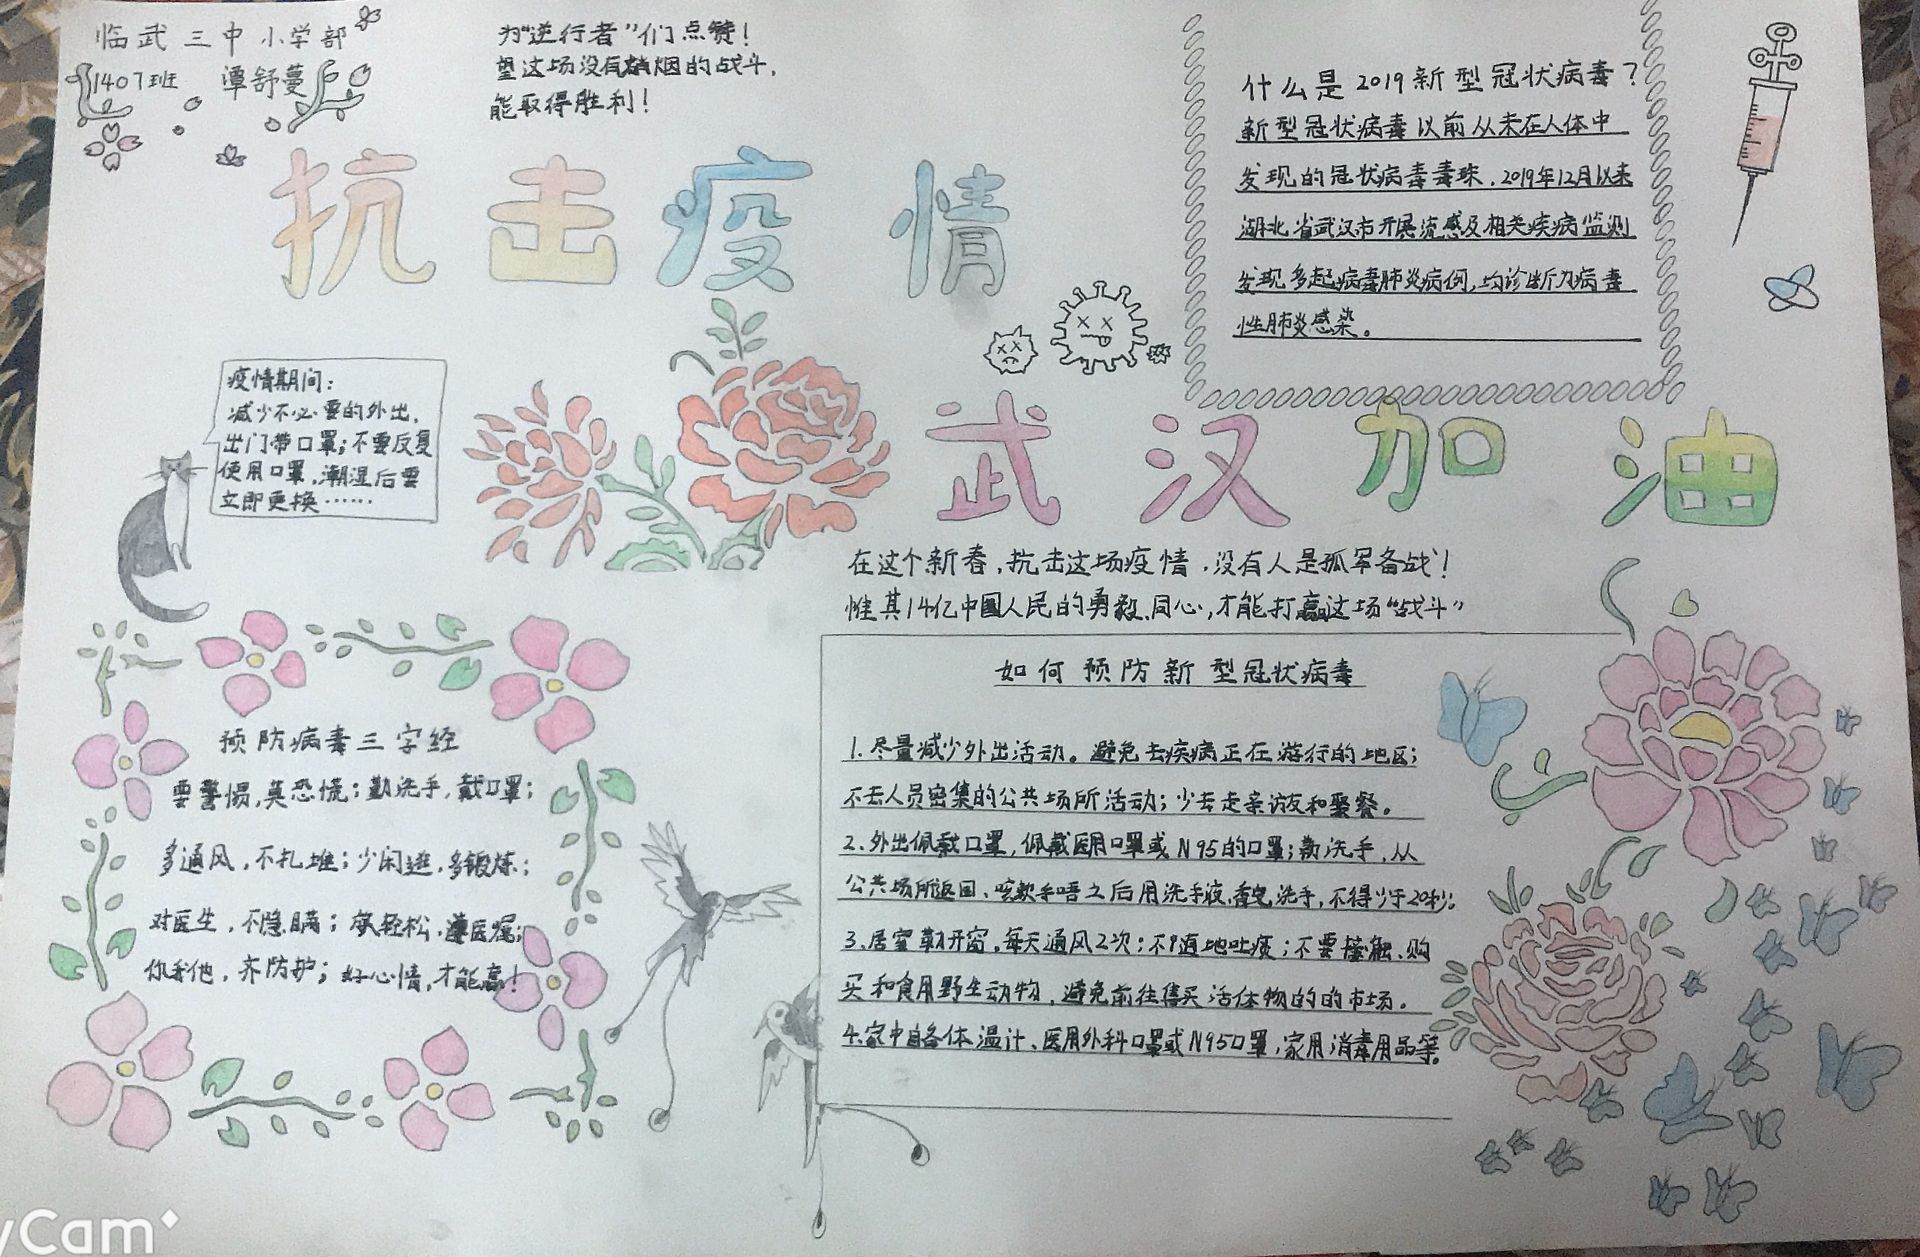 临武三中小学部
1407班 谭舒蔓
为“逆行者”们点赞！
望这场没有硝烟的战斗，
能取得胜利！
抗击疫情
什么是2019新型冠状病毒？
新型冠状病毒以前从未在人体中
发现的冠状病毒毒株，2019年12月以来
湖北省武汉市开展流感及相关疾病监测
发现多起病毒肺炎病例，均诊断为病毒
性肺炎感染。
疫情期间：
减少不必要的外出，
出门带口罩；不要反复
使用口罩，潮湿后要
立即更换……
武汉加油
在这个新春，抗击这场疫情，没有人是孤军备战！
惟其14亿中国人民的勇毅、同心，才能打赢这场“战斗”
预防病毒三字经
要警惕，莫恐慌；勤洗手，戴口罩；
多通风，不扎堆；少闲逛，多锻炼；
对医生，不隐瞒；放轻松，遵医嘱；
你我他，齐防护；好心情，才能赢！
如何预防新型冠状病毒
1.尽量减少外出活动。避免去疾病正在游行的地区；
不去人员密集的公共场所活动；少去走亲访友和聚餐。
2.外出佩戴口罩，佩戴医用口罩或N95的口罩；勤洗手，从
公共场所返回、咳嗽手唔之后用洗手液，香皂洗手，不得少于20秒。
3.居室勤开窗，每天通风2次；不随地吐痰；不要接触、购
买和食用野生动物，避免前往售买活体物的的市场。
4.家中自备体温计、医用外科口罩或N95口罩，家用消毒用品等。
yCam